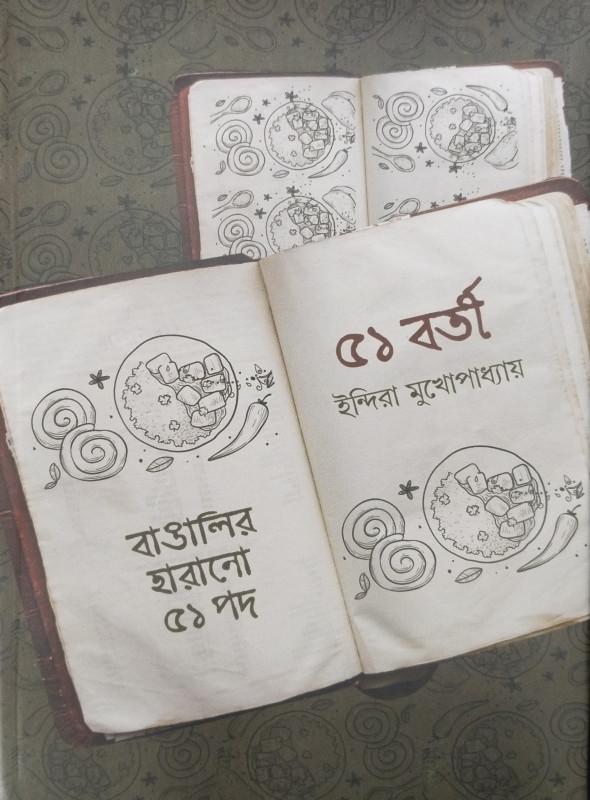 ৫১ বর্তী
ইন্দিরা মুখোপাধ্যায়
বাঙালির
হারানো
৫১ পদ